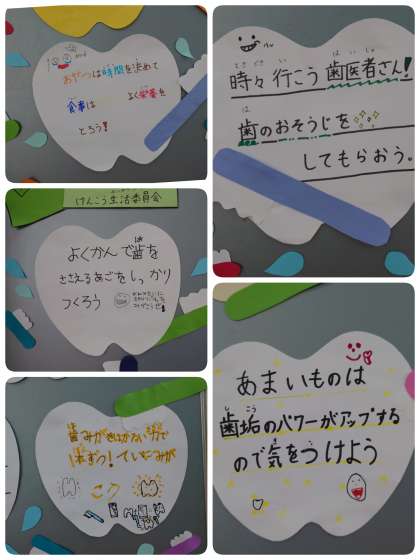 おやつは時間を決めて
食事は よく栄養を
とろう!
けんこう生活委員会
よくかんで歯を
ささえるあごをしっかり
つくろう
歯みがきは
こう
時々行こう歯医者さん!
歯のおそうじを
してもらおう。
あまいものは
歯垢のパワーがアップする
ので気をつけよう